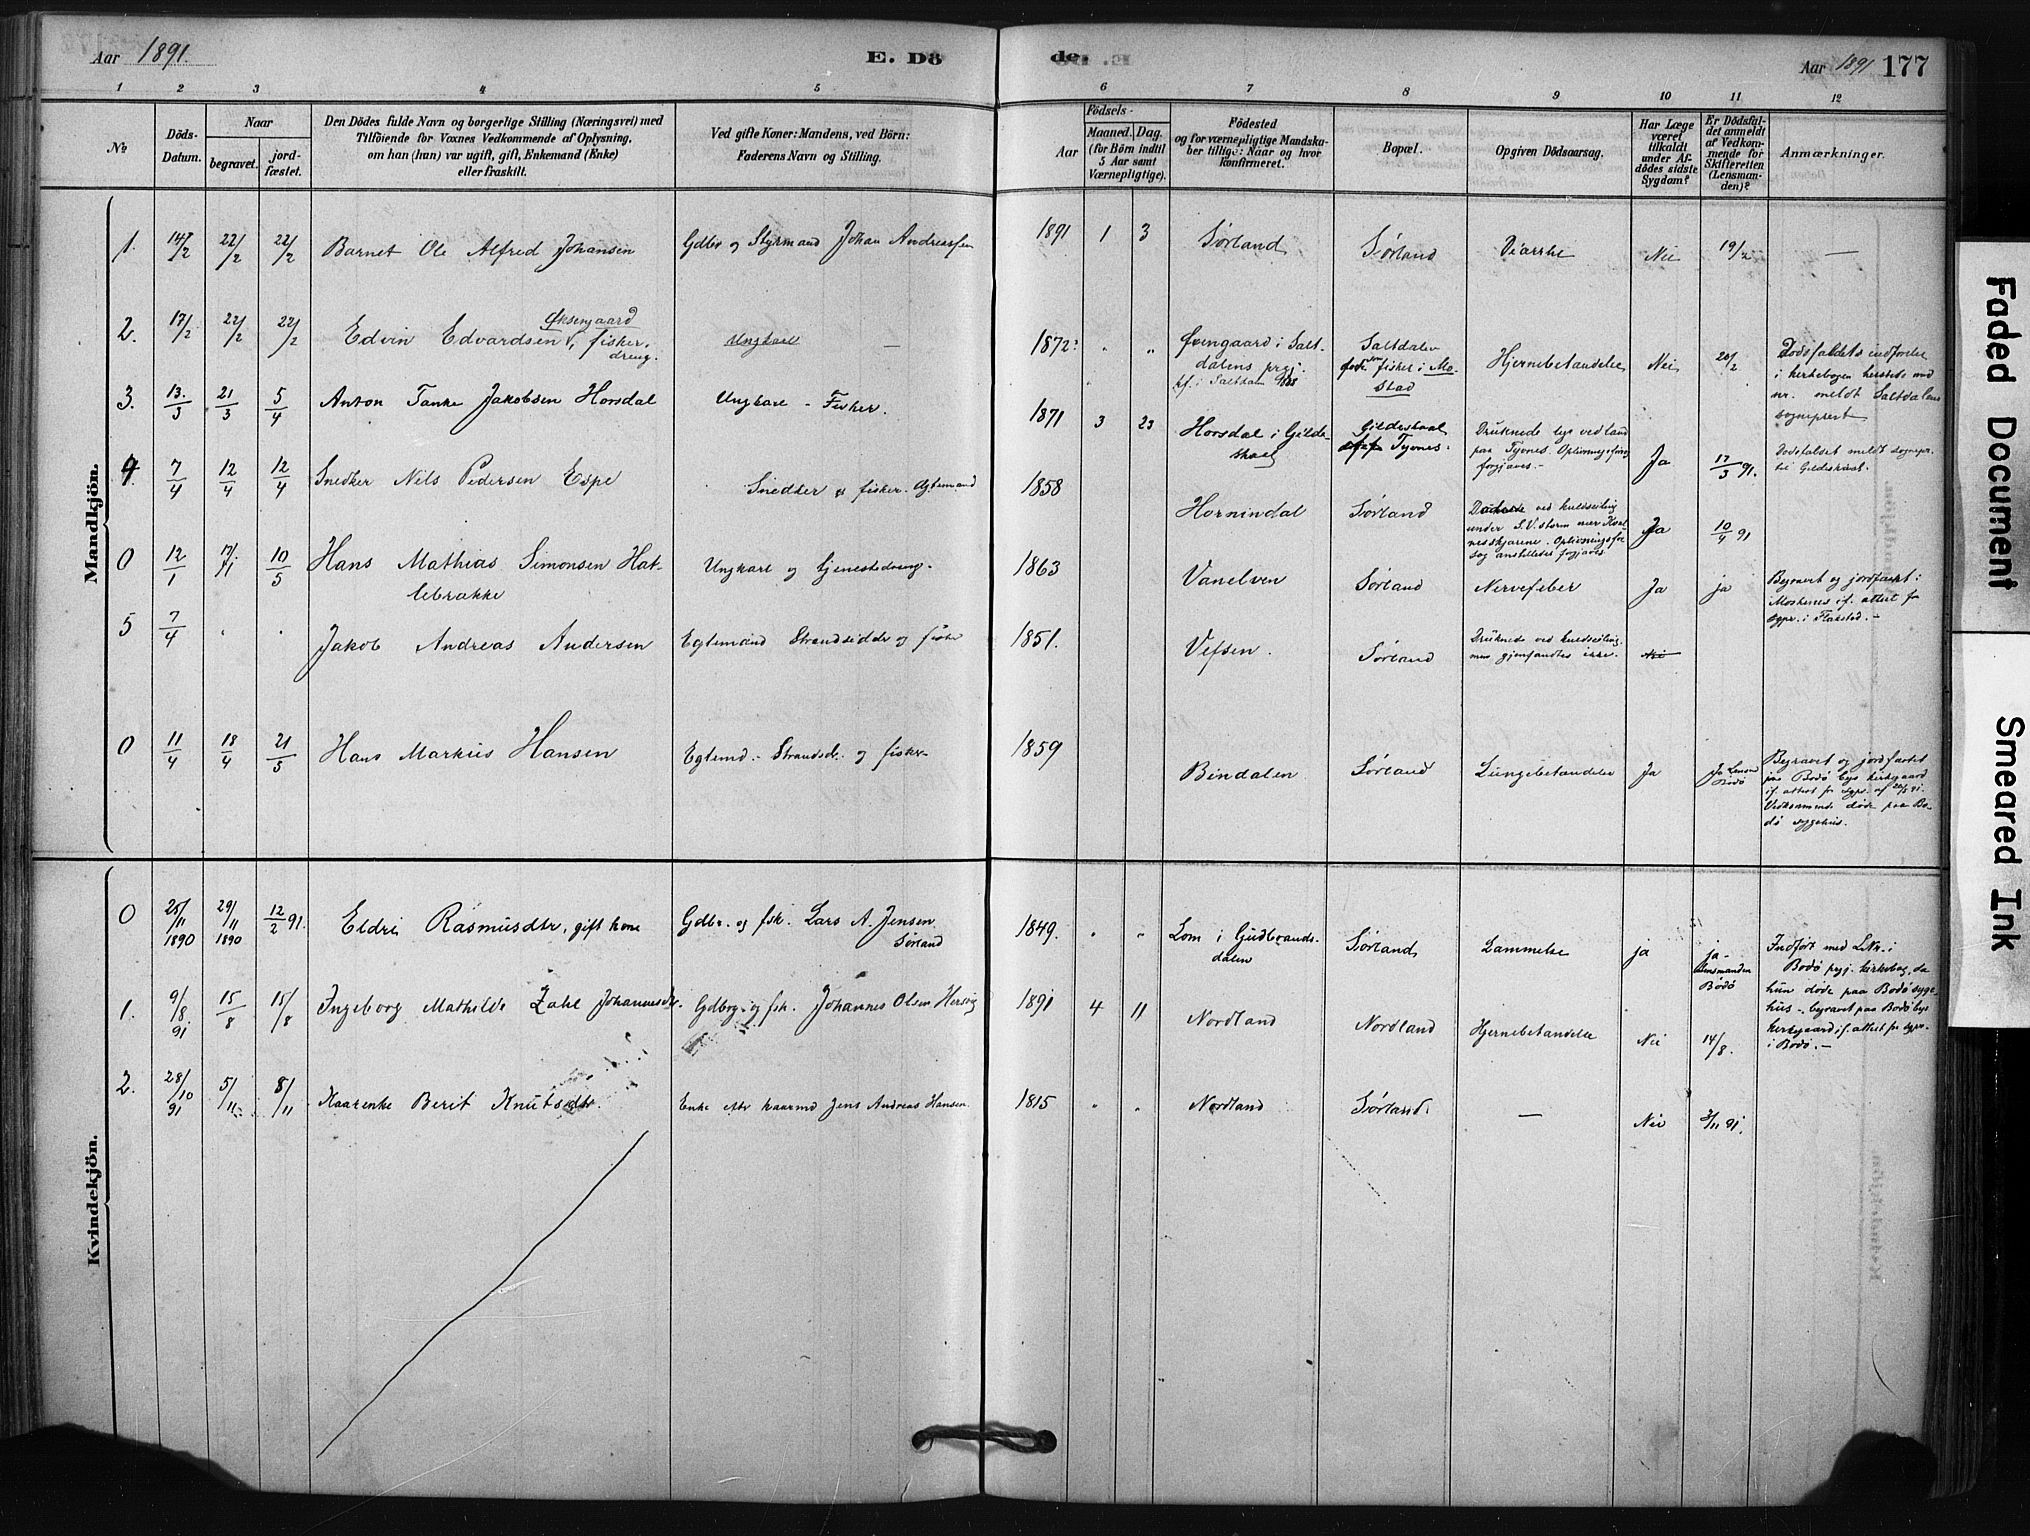 Aar 1891.
E. Dö
de.
Aar 1891
177
1 2 3 4 5 6 7 8 9 10 11 12
No
Döds-
Datum.
Naar
begravet.
jord-
fæstet.
Den Dödes fulde Navn og borgerlige Stilling (Næringsvei) med
Tilföiende for Voxnes Vedkommende af Oplysning,
om han (hun) var ugift, gift, Enkemand (Enke)
eller fraskilt.
Ved gifte Koner: Mandens, ved Börn:
Faderens Navn og Stilling.
Födsels-
Aar
Maaned. Dag.
(for Börn indtil
5 Aar samt
Værnepligtige).
Födested
og for værnepligtige Mandska-
ber tillige: Naar og hvor
konfirmeret.
Bopæl.
Opgiven Dödsaarsag.
Har Læge
været
tilkaldt
under Af-
dödes sidste
Sygdom?
Er Dödsfal-
det anmeldt
af Vedkom-
mende for
Skifteretten
(Lensman-
den)?
Anmærkninger.
Mandkjön.
1. 14/2 22/2 22/2 Barnet Ole Alfred Johansen Gdbr og Styrmand Johan Andreassen 1891 1 3 Sørland Sørland Diarrhe Nei 19/2 —
2. 17/2 22/2 22/2 Edvin Edvardsen Øksengaard, fisker-
dreng.
Ungkarl — 1872? " " Øxengaard i Salt-
dalens prgj.
kf. i Saltdalen
Saltdalen
fisker i Mo-
stad
Hjernebetændelse Nei 20/2
Dödsfaldets indførelse
i kirkebogen herstedes med
nr. meldt Saltdalens
sogneprest
3. 13/3 21/3 5/4 Anton Tanke Jakobsen Horsdal Ungkarl - Fisker. 1871 3 23 Horsdal i Gilde-
skaal
Gildeskaal
Tyvnes.
Druknede lige ved land
paa Tyvnes. Oplivningsforsøg
forgjæves. -
Ja 17/3 91.
Dødsfaldet meldt sognepr.
til Gildeskaal.
4. 7/4 12/4 12/4 Snedker Nils Pedersen Espe Snedker og fisker. Egtemand 1858 Hornindal Sørland
Druknede ved kuldseiling
under S.V. storm nær Kval-
nesskjærene. Oplivningsfor-
søg anstilledes forgjæves
Ja 10/4 91
0 12/1 17/1 10/5 Hans Mathias Simonsen Hat-
lebrække
Ungkarl og tjenestedreng. 1863 Vanelven Sørland Nervefeber Ja ja
Begravet og jordfæstet i
Moskenes if. attest fr
sgpr. i Flakstad. -
5 7/4 . . Jakob Andreas Andersen Egtemand Strandsidder og fisker 1851. Vefsen. Sørland
Druknede ved kuldseiling,
men gjenfandtes ikke.
Nei
0 11/4 18/4 21/5 Hans Markus Hansen Egtemd. - Strandsdr. og fisker 1859 Bindalen Sørland Lungebetændelse Ja Ja Lensm
Bodö
Begravet og jordfæstet
paa Bodø bys kirkegaard
if. attest fr sgpr. af
Vedkommende døde paa Bo-
dø sygehus.
Kvindekjön.
0 25/11 1890 29/11 1890 12/2 91. Eldri Rasmusdtr, gift kone Gdbr. og fisk. Lars A. Jensen
Sørland
1849. " " Lom i Gudbrands-
dalen
Sørland Lammelse ja ja -
lensmanden
Bodø
Indført med LNr. i
Bodø prgj. kirkebog, da
hun døde paa Bodø syge-
hus - begravet paa Bodø bys
kirkegaard if. attest fr sgpr.
i Bodø. -
1. 9/8 91 15/8 15/8 Ingeborg Mathilde Zahl Johannesdtr. Gdbrg. og fsk. Johannes Olsen 1891 4 11 Nordland Nordland Hjernebetændelse Nei 14/8.
2. 28/10 91 5/11 8/11 Kaarenke Berit Knutsdtr. Enke eftr kaarmd Jens Andreas Hansen 1815 " " Nordland Sørland. — Nei 3/11 91.
Faded Document
Smeared Ink